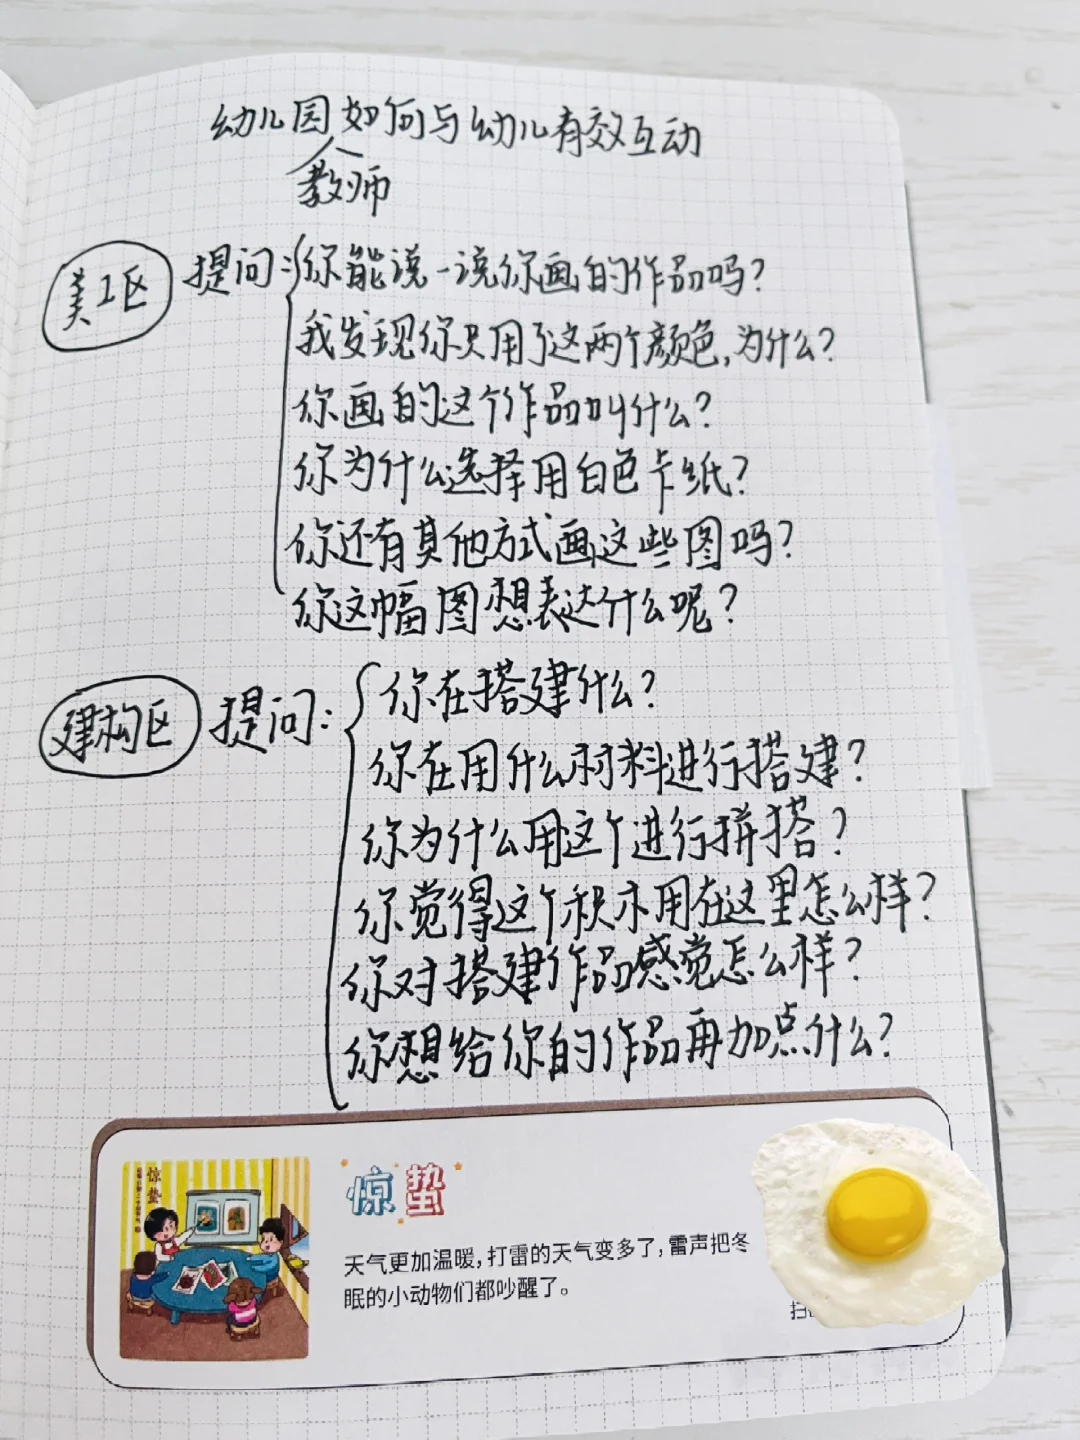 幼儿园教师如何与幼儿有效互动
美工区 提问:你能说一说你画的作品吗?
我发现你只用了这两个颜色,为什么?
你画的这个作品叫什么?
你为什么选择用白色卡纸?
你还有其他方式画这些图吗?
你这幅图想表达什么呢?
建构区 提问:你在搭建什么?
你在用什么材料进行搭建?
你为什么用这个进行拼搭?
你觉得这个积木用在这里怎么样?
你对搭建作品感觉怎么样?
你想给你的作品再加点什么?
惊蛰
惊蛰
天气更加温暖,打雷的天气变多了,雷声把冬
眠的小动物们都吵醒了。
扫